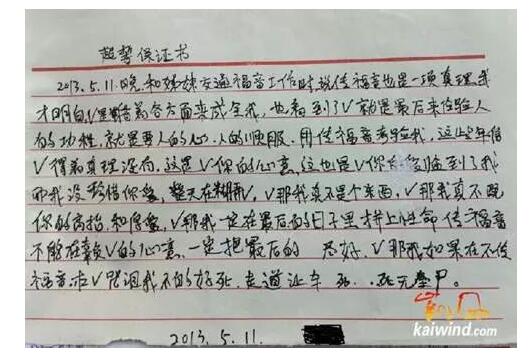 起誓保证书
2013.5.11.晚和姊妹交通福音工作时说传福音也是一项真理我
才明白,V是借着各方面来成全我,也看到了V就是最后来给人
的功程就是要人的心.人的顺服.用传福音考验我,这些年信
V得着真理没有,这是V你的心意,这也是V你 临到了我
而我没珍惜你 整天在糊弄V,V那我真不是个东西,V那我真不配
你的高抬和 V那我一定在最后的日子里拼上性命传福音
不能在辜负V的心意一定把最后的 尽好,V那我如果在不传
福音 V咒诅我不的好死,走道让车 死..死无 尸。
2013.5.11.
kaiwind.com